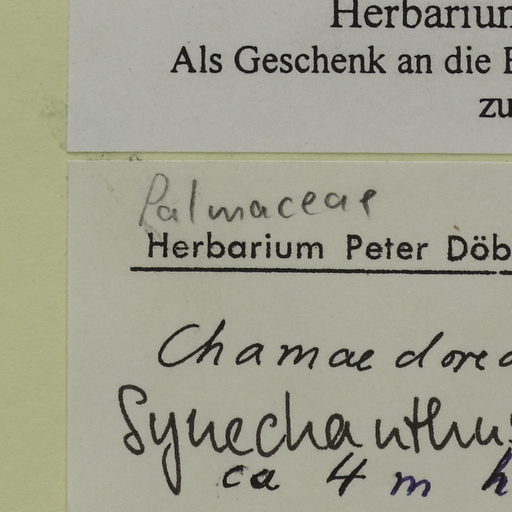 Herbarium
Als Geschenk an die B
zu
Palmaceae
Herbarium Peter Döb
Chamaedorea
Synechanthus
ca 4 m h